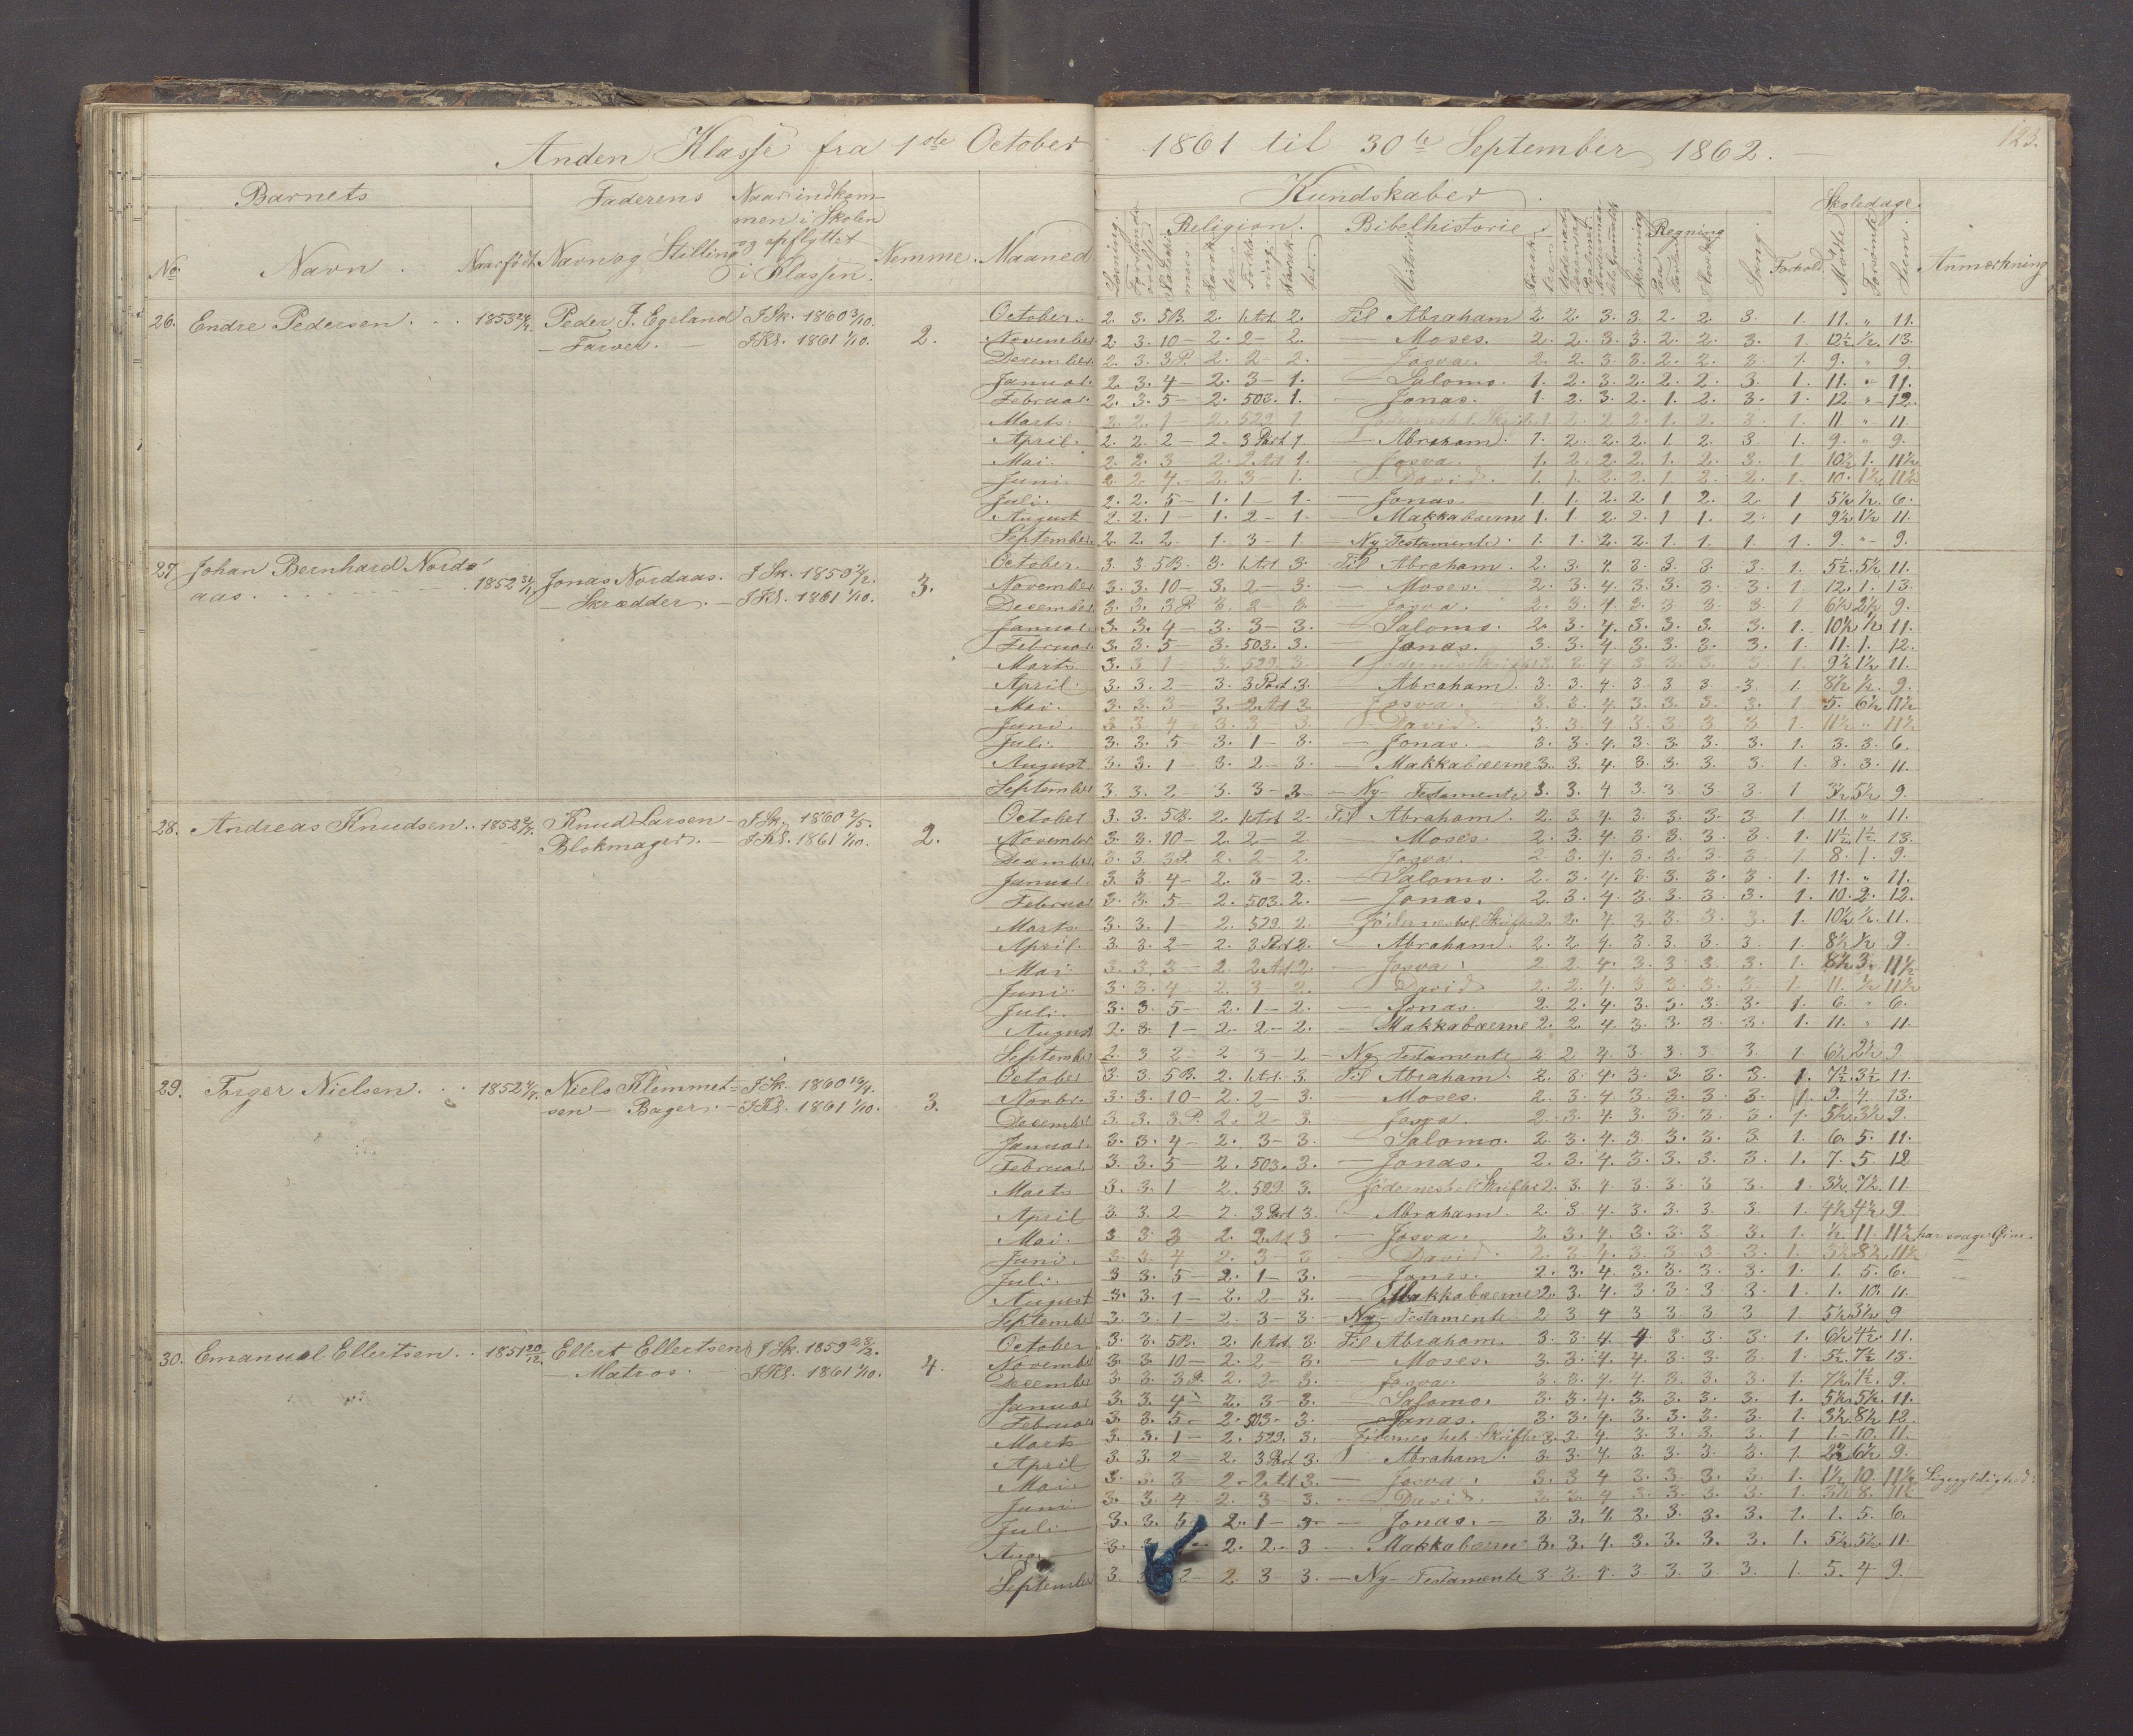 Anden Klasse fra 1ste October 1861 til 30te September 1862.
123.
Barnets Faderens Naar indkom-
men i Skolen
og opflyttet
i Klassen.
No. Navn. Naar født. Navn og Stilling Nemme. Maaned
Kundskaber. Skoledage.
Religion. Bibelhistorie. Regning
Læsning. Historie Skrivning Sang. Forhold. Mødte Forsømte Sum. Anmærkning
26. Endre Pedersen. 1853 Peder J. Egeland I Sk. 1860 2/10.
– Farver. – I Kl. 1861 1/10. 2.
October. 2. 3. 5B. 2. 1 Art. 2. Til Abraham 2. 2. 3. 3. 2. 2. 3. 1. 11. „ 11.
November. 2. 3. 10 – 2. 2 – 2. – Moses. 2. 2. 3. 3. 2. 2. 3. 1. 12½ ½. 13.
December. 2. 3. 3P. 2. 2 – 2. – Josva. 2. 2. 3. 3. 2. 2. 3. 1. 9. „ 9.
Januar. 2. 3. 4 – 2. 3 – 1. – Salomo. 1. 2. 3. 2. 2. 2. 3. 1. 11. „ 11.
Februar. 2. 3. 5 – 2. 503. 1. – Jonas. 1. 2. 3. 2. 1. 2. 3. 1. 12. „ 12.
Marts. 2. 2. 1 – 2. 529. 1 1. 2. 2. 2. 1. 2. 3. 1. 11 „ 11.
April. 2. 2. 2 – 2. 3 Part 1. – Abraham. 1. 2. 2. 2. 1. 2. 3. 1. 9. „ 9.
Mai. 2. 2. 3 – 2. 2 Art 1. – Josva. 1. 2. 2. 2. 1. 2. 3. 1. 10½ 1. 11½
Juni. 2 2 4 – 2. 3 – 1. – David. 1. 1. 2. 2. 1. 2. 2. 1. 10. 1½ 11½
Juli. 2. 2. 5 – 1. 1 – 1. – Jonas. 1 1. 2. 2. 1 2. 2. 1 5½ ½. 6.
August 2. 2. 1 – 1. 2 – 1. – Makkabæerne 1. 1 2. 2. 1 1. 2. 1 9½ 1½ 11.
September. 2. 2. 2. 1. 3 – 1 – Ny Testamente. 1. 1. 2. 2. 1. 1. 1. 1. 9. „ 9.
27. Johan Bernhard Nords-
aas. 1852 Jonas Nordaas. I Sk. 1859
– Skrædder. – I Kl. 1861 1/10. 3.
October. 3. 3. 5B. 3. 1 Art 3. Til Abraham. 2. 3. 4. 3. 3. 3. 3. 1. 5½. 5½ 11.
November. 3. 3. 10 – 3. 2 – 3. – Moses. 2. 3. 4. 3. 3. 3. 3. 1. 12. 1. 13.
December 3. 3. 3P. 3. 2 – 3. – Josva. 2. 3. 4. 2. 3. 3. 3. 1 6½ 2½ 9.
Januar. 3. 3. 4 – 3. 3 – 3. – Salomo. 2. 3. 4. 3. 3. 3. 3. 1. 10½ ½ 11.
Februar. 3. 3. 5 – 3. 503. 3. – Jonas. 3. 3. 4. 3. 3. 3. 3. 1. 11. 1. 12.
Marts. 3. 3 1 – 3. 529 3. 3. 3. 4 3 3. 3. 3 1. 9½ 1½ 11.
April. 3. 3. 2 – 3. 3 Part 3. – Abraham. 3. 3. 4. 3. 3 3. 3. 1. 8½ ½. 9.
Mai. 3. 3. 3 – 3. 2 Art 3. – Josva. 3. 3. 4. 3. 3. 3. 3. 1 5. 6½ 11½
Juni. 3 3. 4 – 3. 3 – 3. – David. 3. 3. 4 3. 3. 3 3 1. 11½ „ 11½
Juli. 3. 3. 5 – 3. 1 – 3. – Jonas. – 3. 3. 4. 3. 3. 3. 3. 1. 3. 3. 6.
August 3. 3. 1 – 3. 2 – 3. – Makkabæerne 3. 3. 4. 3. 3. 3. 3. 1. 8. 3. 11.
September 3. 3. 2 – 3. 3 – 3 – Ny Testamente 3. 3. 4 3. 3. 3 3 1 3½ 5½ 9.
28. Andreas Knudsen. 1852 Knud Larsen – I Sk. 1860 2/5.
Blokmager. – I Kl. 1861 1/10. 2.
October 3. 3. 5B. 2. 1 Art 2. Til Abraham. 2. 3 4. 3. 3. 3. 3. 1. 11. „ 11.
November 3. 3. 10 – 2. 2 – 2. – Moses. 2. 3. 4. 3. 3. 3. 3. 1. 11½ 1½ 13.
December 3. 3. 3P. 2. 2 – 2. – Josva. 2. 3. 4. 3. 3. 3. 3 1. 8. 1. 9.
Januar. 3. 3 4 – 2. 3 – 2. – Salomo. 2. 3. 4. 3. 3. 3. 3. 1. 11. „ 11.
Februar 3. 3. 5 – 2. 503. 2. – Jonas. 2. 3. 4. 3. 3. 3. 3. 1. 10. 2. 12.
Marts. 3. 3. 1 – 2. 529. 2. Jødernes hel. Skrifter 2. 2. 4. 3 3. 3. 3. 1. 10½ ½. 11.
April. 3. 3. 2 – 2. 3 Part 2. – Abraham. 2. 2. 4. 3. 3. 3. 3. 1. 8½ ½ 9.
Mai. 3. 3. 3 – 2. 2 Art 2. – Josva. 2. 2. 4. 3. 3. 3. 3. 1. 8½ 3. 11½
Juni. 3. 3. 4 – 2. 3 – 2. – David 2. 2. 4. 3 3. 3. 3. 1. 11. ½ 11½
Juli. 3. 3. 5 – 2. 1 – 2. – Jonas. 2. 2. 4. 3. 3. 3. 3. 1. 6. „ 6.
August 2. 3. 1 – 2. 2 – 2. – Makkabæerne 2. 2. 4. 3. 3. 3. 3. 1. 11. „ 11.
September 2. 3 2 – 2 3 – 2 – Ny Testamente 2 2 4. 3. 3. 3. 3. 1. 6½ 2½ 9
29. Torger Nielsen. 1852 Niels Klemmet- I Sk. 1860
sen – Bager. – I Kl. 1861 1/10. 3.
October 3. 3. 5B. 2. 1 Art. 3. Til Abraham. 2. 3. 4. 3. 3. 3. 3. 1. 7½. 3½ 11.
Novbr. 3. 3. 10 – 2. 2 – 3. Moses. 2. 3. 4 3. 3. 3. 3. 1. 9. 4. 13.
December 3. 3. 3P. 2. 2 – 3. – Josva. 2. 3. 4. 3. 3. 3. 3. 1. 5½. 3½ 9.
Januar. 3. 3. 4 – 2. 3 – 3. – Salomo. 2. 3. 4. 3. 3. 3. 3. 1. 6. 5. 11.
Februar. 3. 3. 5 – 2. 503. 3. – Jonas. 2. 3. 4. 3. 3. 3. 3. 1. 7. 5 12
Marts 3. 3. 1 – 2. 529. 3. Jødernes hel. Skrifter 2. 3. 4. 3. 3. 3. 3. 1. 3½ 7½. 11.
April 3. 3. 2 – 2. 3 Part 3. – Abraham. 2. 3. 4. 3. 3. 3. 3. 1. 4½ 4½ 9.
Mai. 3 3. 3 – 2. 2 Art 3 – Josva. 2 3. 4. 3. 3. 3. 3. 1. ½. 11. 11½ har svage Øine.
Juni. 3. 3. 4 – 2. 3 – 3 – David. 2. 3 4. 3. 3. 3. 3. 1. 3½ 8½ 11½ –
Juli. 3 3. 5 – 2. 1 – 3. – Jonas. 2. 3. 4. 3. 3. 3. 3. 1. 1. 5. 6. –
August 3. 3. 1 – 2. 2 – 3. – Makkabæerne 2. 3. 4. 3. 3. 3. 3. 1. 1. 10. 11.
September 3. 3. 1 – 2. 3 – 3. – Ny Testamente 2 3 4 3 3 3 3 1. 5½ 3½ 9
30. Emanuel Ellertsen. 1851 20/12. Ellert Ellertsen I Sk. 1859
– Matros. – I Kl. 1861 1/10. 4.
October 3. 3. 5B. 2. 1 Art. 3. Til Abraham. 3. 3. 4. 4 3. 3. 3. 1. 6½ 4½. 11.
November 3. 3. 10 – 2. 2 – 3. – Moses. 3. 3. 4. 4. 3. 3. 3. 1. 5½. 7½ 13.
December 3. 3. 3P. 2. 2 – 3. – Josva. 3. 3. 4. 4. 3. 3. 3. 1. 7½. 1½. 9.
Januar 3. 3. 4 – 2. 3 – 3. – Salomo. 3. 3. 4. 3. 3. 3. 3. 1. 5½. 5½. 11.
Februar 3. 3. 5 – 2. 503 – 3. – Jonas. 3. 3. 4. 3. 3. 3. 3. 1. 3½. 8½ 12.
Marts 3. 3. 1 – 2. 529. 3. – Jødernes hel. Skrifter 3. 3 4. 3. 3. 3. 3. 1 1. – 10. 11.
April 3. 3. 2 – 2. 3 Part 3. – Abraham. 3. 3. 4. 3. 3. 3. 3. 1. 2½ 6½ 9.
Mai. 3. 3. 3 – 2. 2 Art 3. – Josva. 3. 3 4 3. 3. 3. 3. 1. 1½ 10. 11½ Ligegyldighed.
Juni 3. 3. 4 – 2. 3 – 3. – David. 3. 3. 4 3. 3. 3. 3. 1. 3½ 8. 11½
Juli. 3. 3. 5 – 2. 1 – 3. – Jonas. – 3 3. 4. 3. 3. 3. 3. 1. 1. 5. 6.
Aug. 3. 2. 2 – 3 – Makkabæerne 3. 3. 4. 3. 3. 3. 3. 1. 5½. 5½. 11.
September 3. 2 – 2 3 3. – Ny Testamente 3 3. 3. 3. 3 3. 1. 5. 4 9.